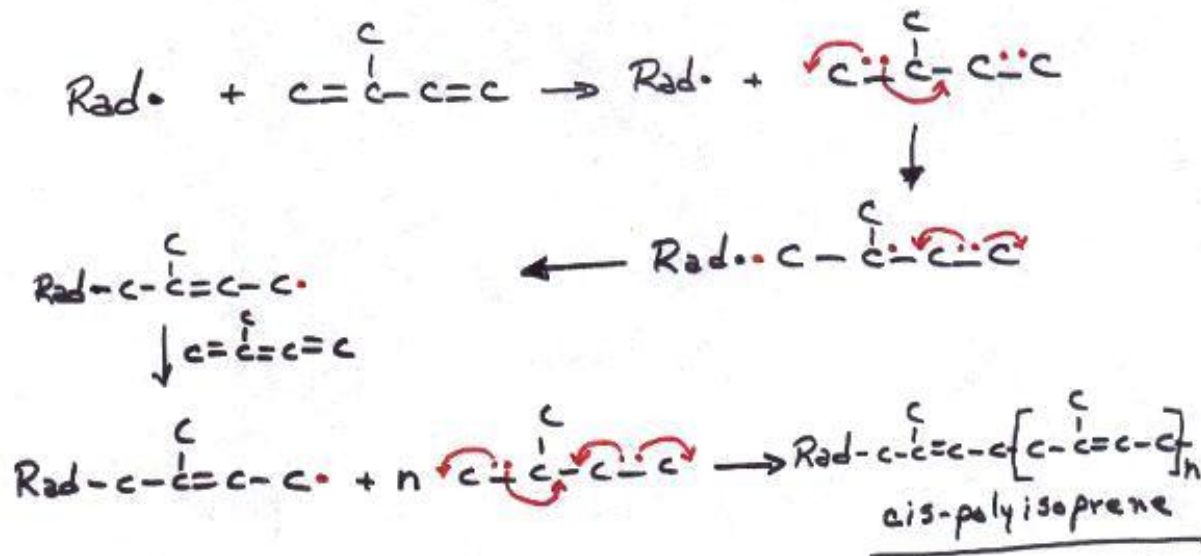 C C
Rad• + C=C-C=C → Rad• + C••C-C••C
C
Rad•• C-C•-C••C
C
Rad-C-C=C-C•
C
↓ C=C=C=C
C C C C
Rad-C-C=C-C• + n C••C-C••C → Rad-C-C=C-C[C-C=C-C]n
cis-polyisoprene